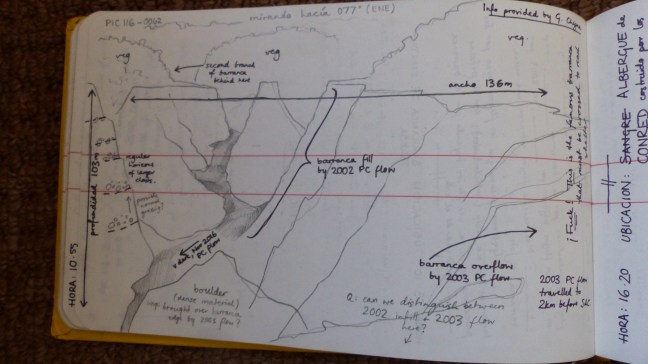 PIC 116-0062
mirando hacia 077° (ENE)
Info provided by G. Chigna
veg
veg
veg.
second branch
of barranca
behind here
ancho 136m
profundidad 103m
regular
horizons
of larger
clasts.
barranca fill
by 2002 PC flow
Nov 2016
PC flow
boulder
(dense material)
brought over barranca
edge by 2003 flow?
barranca overflow
by 2003 PC flow
Q: can we distinguish between
2002 infill + 2003 flow
here?
2003 PC flow
travelled to
2km before
¡ Fuck! This is the famous barranca
that must be crossed to reach
HORA: 10.55
HORA: 16.20 UBICACION: SANGRE ALBERGUE de
CONRED construido por los